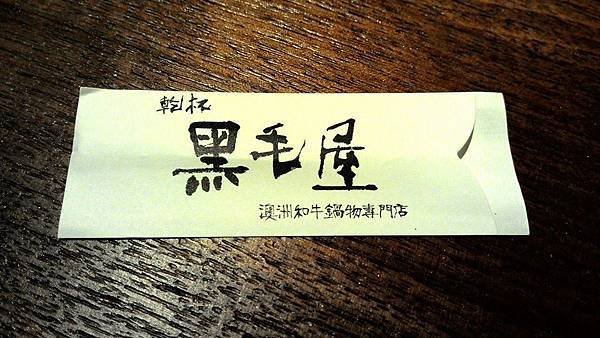 乾杯
黑毛屋
澳洲和牛鍋物專門店